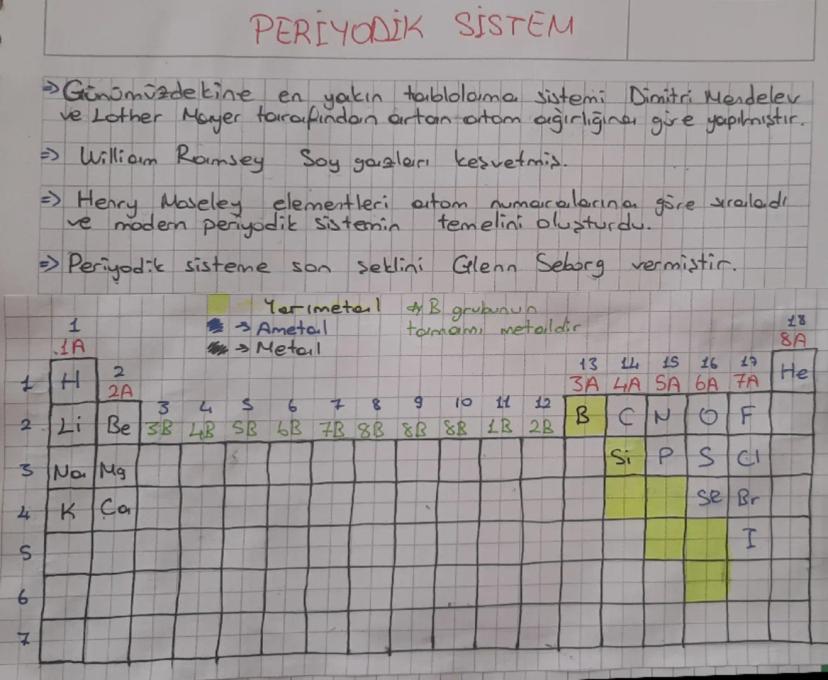 PERİYODİK SİSTEM
⇒ Günümüzdekine en yakın tablolama sistemi Dimitri Mendelev
ve Lother Mayer tarafından artan atom ağırlığına göre yapılmıştır.
⇒ William Ramsey Soy gazları keşvetmiş.
⇒ Henry Moseley elementleri atom numaralarına göre sıraladı
ve modern periyodik sistemin temelini oluşturdu.
⇒ Periyodik sisteme son şeklini Glenn Seborg vermiştir.
Yarımetal ☆ B grubunun
→ Ametal tamamı metaldir
→ Metal
1 18
1A 8A
1 H 2 13 14 15 16 17 He
2A 3A 4A 5A 6A 7A
3 4 5 6 7 8 9 10 11 12
2 Li Be 3B 4B 5B 6B 7B 8B 8B 8B 1B 2B B C N O F
3 Na Mg Si P S Cl
4 K Ca Se Br
5 I
6
7